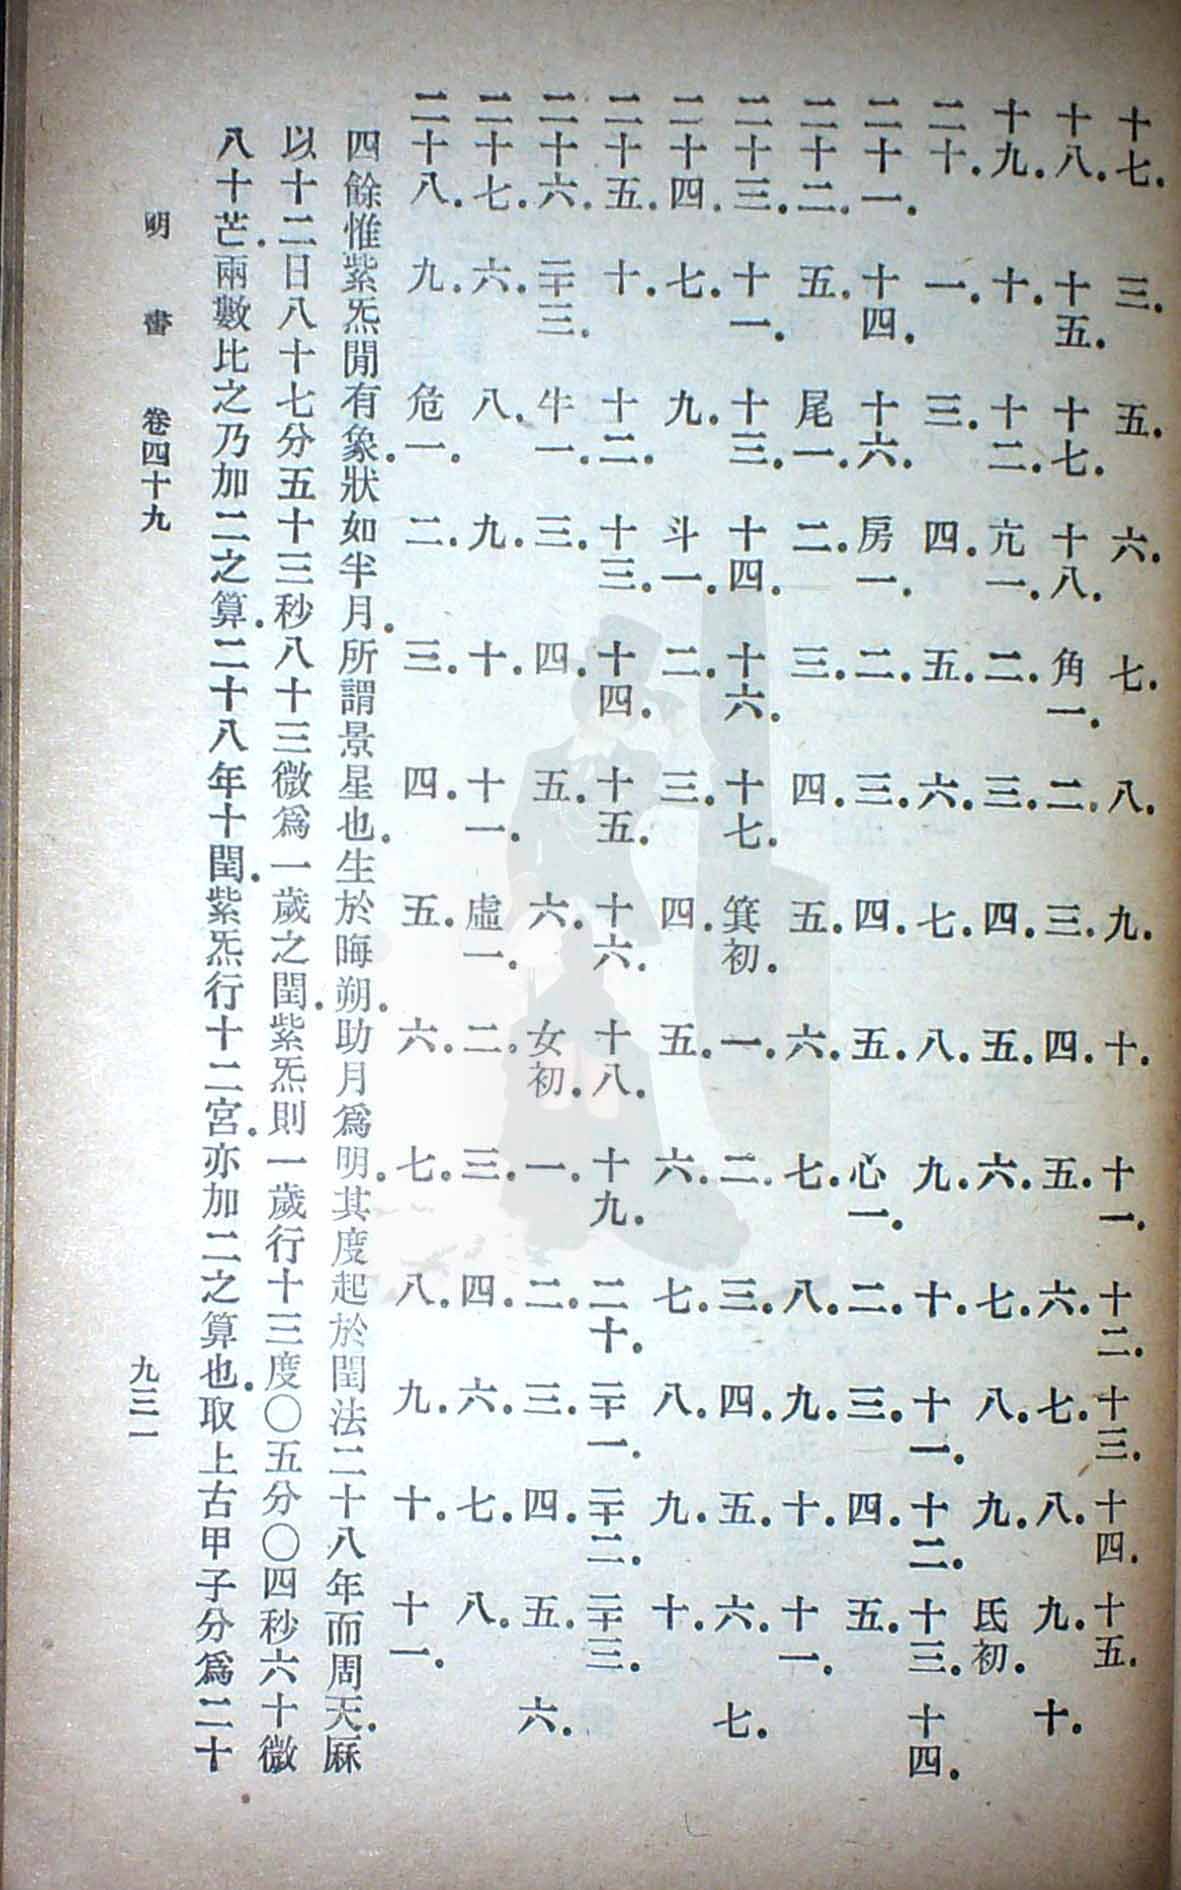 十七．三．五．六．七．八．九．十．十一．十二．十三．十四．十五．
十八．十五．十七．十八．角一．二．三．四．五．六．七．八．九．十．
十九．十．十二．亢一．二．三．四．五．六．七．八．九．氐初．
二十．一．三．四．五．六．七．八．九．十．十一．十二．十三．十四．
二十一．十四．十六．房一．二．三．四．五．心一．二．三．四．五．
二十二．五．尾一．二．三．四．五．六．七．八．九．十．十一．
二十三．十一．十三．十四．十六．十七．箕初．一．二．三．四．五．六．七．
二十四．七．九．斗一．二．三．四．五．六．七．八．九．十．
二十五．十．十二．十三．十四．十五．十六．十八．十九．二十．二十一．二十二．二十三．
二十六．二十三．牛一．三．四．五．六．女初．一．二．三．四．五．六．
二十七．六．八．九．十．十一．虛一．二．三．四．六．七．八．
二十八．九．危一．二．三．四．五．六．七．八．九．十．十一．
四餘惟紫炁閒有象．狀如半月．所謂景星也．生於晦朔．助月爲明．其度起於閏法二十八年而周天．厤
以十二日八十七分五十三秒八十三微爲一歲之閏．紫炁則一歲行十三度〇五分〇四秒六十微
八十芒．兩數比之乃加二之算．二十八年十閏．紫炁行十二宮．亦加二之算也．取上古甲子分爲二十
明書 卷四十九 九三一